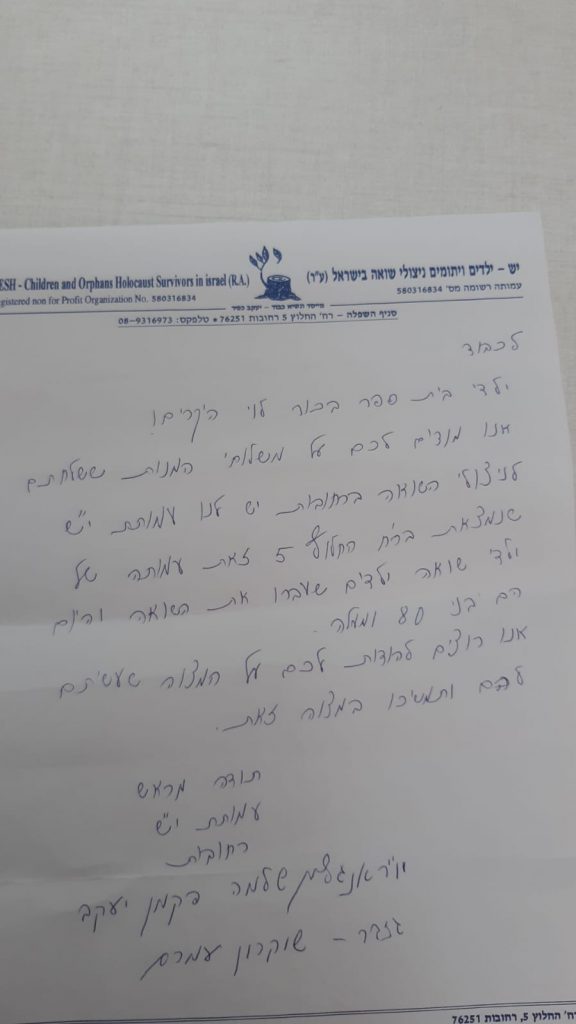 יש - ילדים ויתומים ניצולי שואה בישראל (ע"ר)
עמותה רשומה מס' 580316834
ESH - Children and Orphans Holocaust Survivors in israel (R.A.)
egistered non for Profit Organization No. 580316834
מייסד הנשיא כבוד - יעקב כפיר
סניף השפלה - רח' החלוץ 5 רחובות 76251 • טלפקס: 08-9316973
לכבוד
ילדי בית ספר בכור לוי היקרים!
אנו מודים לכם על משלוחי המנות ששלחתם
לניצולי השואה ברחובות יש לנו עמותת י"ש
שנמצאת ברח החלוץ 5 זאת עמותה של
ילדי שואה ילדים שעברו את השואה והיום
הם בני 80 ומעלה.
אנו רוצים להודות לכם על המצוה שעשיתם
לכם ותמשיכו במצוה זאת.
תודה מראש
עמותת י"ש
רחובות
יו"ר שלמה יעקב
גזבר - שוקרון עמרם
רח' החלוץ 5, רחובות 76251